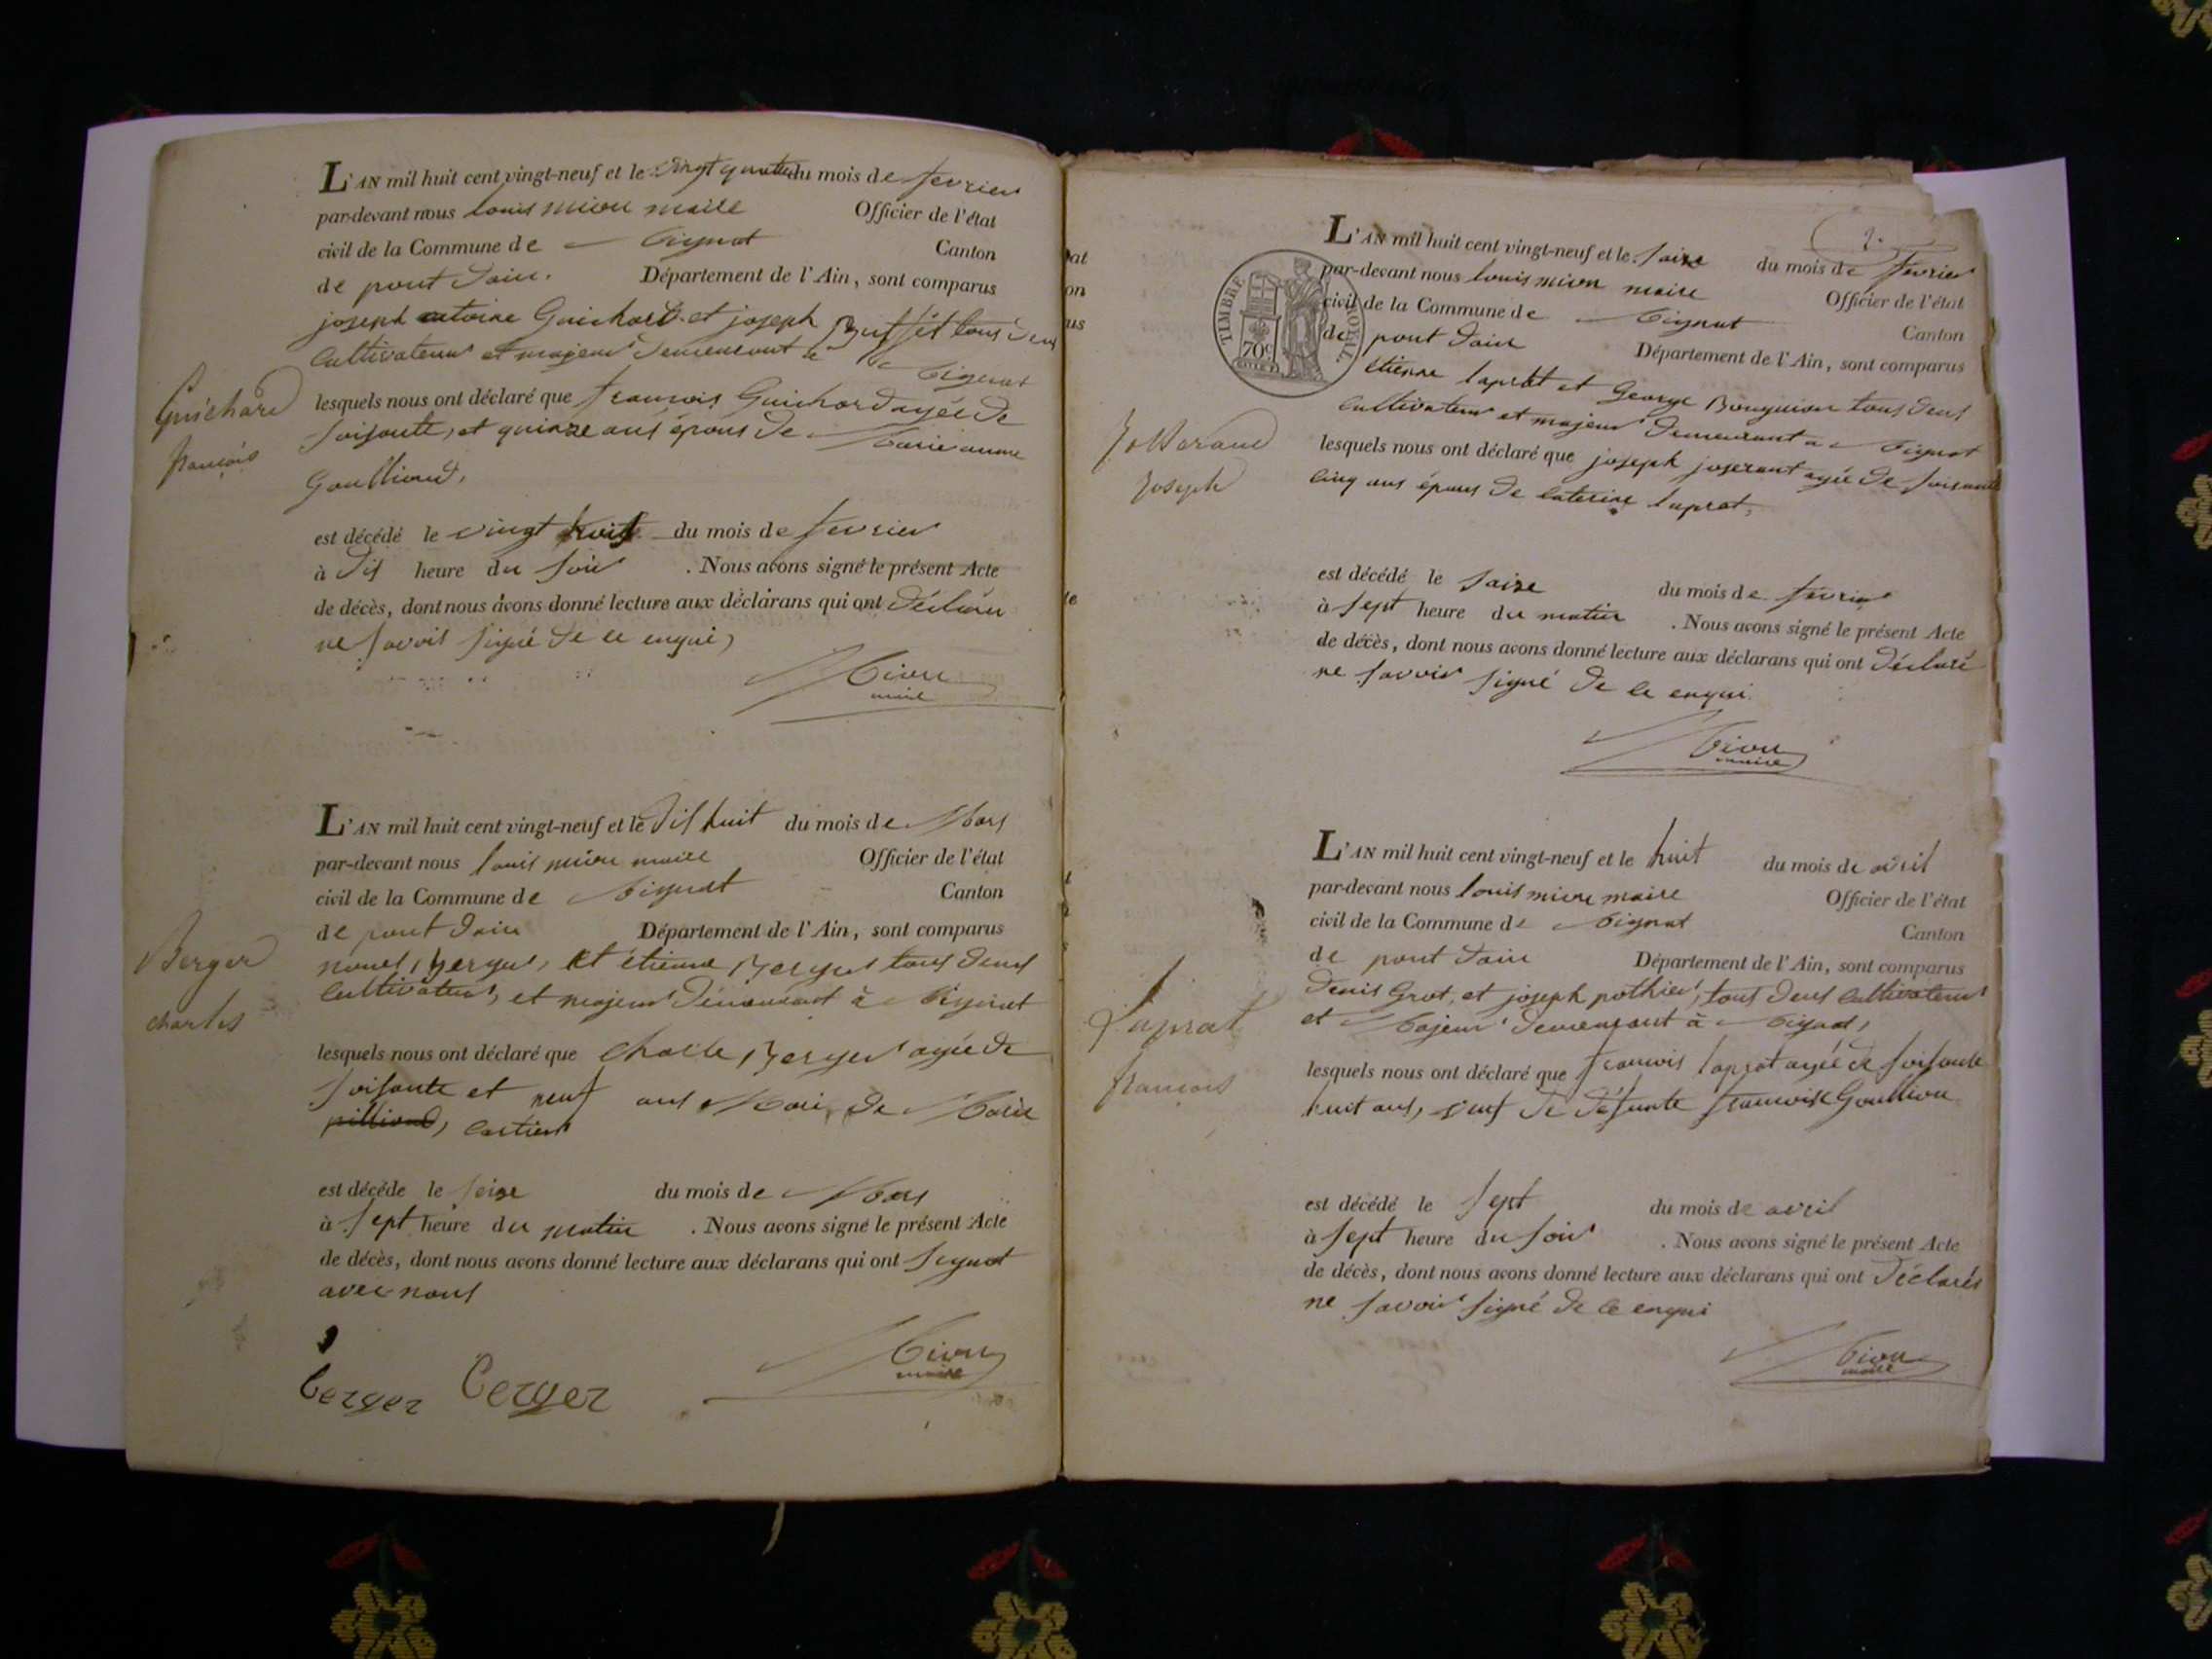 L'AN mil huit cent vingt-neuf et le vingt quattre du mois de fevrier
par-devant nous louis miou maire Officier de l'état
civil de la Commune de Mignat Canton
de pont dain. Département de l'Ain, sont comparus
joseph antoine Guichard et joseph Buffet tous deus
Cultivateur et majeur demeurant a Mignat
Guichard
françois
lesquels nous ont déclaré que francois Guichard agée de
soisante, et quinze ans épous de Marie anne
Goullioud,
est décédé le vingt du mois de fevrier
à dis heure du soir . Nous avons signé le présent Acte
de décès, dont nous avons donné lecture aux déclarans qui ont déclaré
ne savoir signé de ce enqui,
Miou
maire
L'AN mil huit cent vingt-neuf et le dis huit du mois de Mars
par-devant nous louis miou maire Officier de l'état
civil de la Commune de Mignat Canton
de pont dain Département de l'Ain, sont comparus
Berger, et étienne Berger tous deus
Cultivateur, et majeur demeurant à Mignat
Berger
charles
lesquels nous ont déclaré que Charle Berger agée de
soisante et neuf ans Mari de Marie
pilliond, cartier
est décédé le seise du mois de Mars
à sept heure du matin . Nous avons signé le présent Acte
de décès, dont nous avons donné lecture aux déclarans qui ont signot
avec nous
Berger Berger Miou
maire
2.
L'AN mil huit cent vingt-neuf et le saize du mois de fevrier
par-devant nous louis miou maire Officier de l'état
civil de la Commune de Mignat Canton
de pont dain Département de l'Ain, sont comparus
TIMBRE ROYAL
70c
étienne laprat et George Bouguion tous deus
Cultivateur et majeur demeurant a Mignat
Joseph
lesquels nous ont déclaré que joseph joserant agée de soisante
cinq ans épous de Caterine laprat,
est décédé le saize du mois de fevrier
à sept heure du matin . Nous avons signé le présent Acte
de décès, dont nous avons donné lecture aux déclarans qui ont déclaré
ne savoir signé de ce enqui
Miou
maire
L'AN mil huit cent vingt-neuf et le huit du mois de avril
par-devant nous louis miou maire Officier de l'état
civil de la Commune de Mignat Canton
de pont dain Département de l'Ain, sont comparus
Denis Grot, et joseph pothier, tous deus Cultivateur
et Majeur demeurant à Mignat,
Laprat
francois
lesquels nous ont déclaré que francois laprat agée de soisante
huit ans, veuf de défunte francoise Goullion
est décédé le sept du mois de avril
à sept heure du soir . Nous avons signé le présent Acte
de décès, dont nous avons donné lecture aux déclarans qui ont déclarés
ne savoir signé de ce enqui
Miou
maire